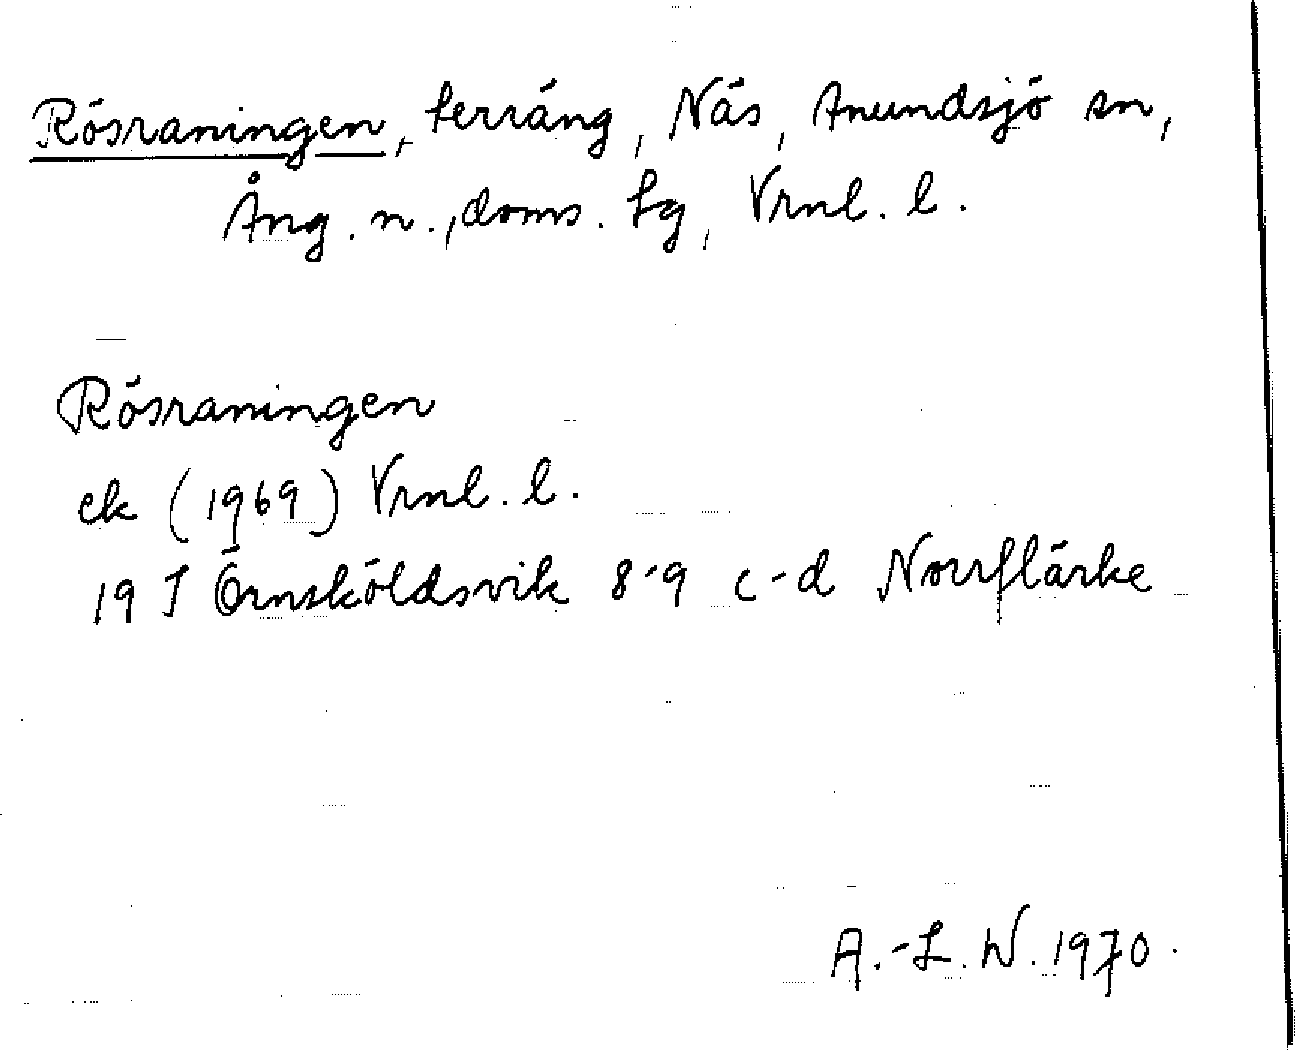 Rösraningen, terräng, Näs, Anundsjö sn,
Ång. n., doms. tg, Vrnl. l.
Rösraningen
ek (1969) Vrnl. l.
19 I Örnsköldsvik 8-9 c-d Norrflärke
A.-L. W. 1970.